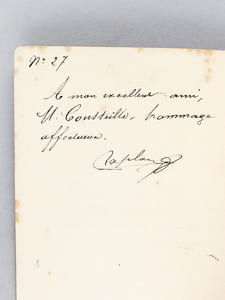 No 27
A mon excellent ami,
M. Consteille, hommage
affectueux.